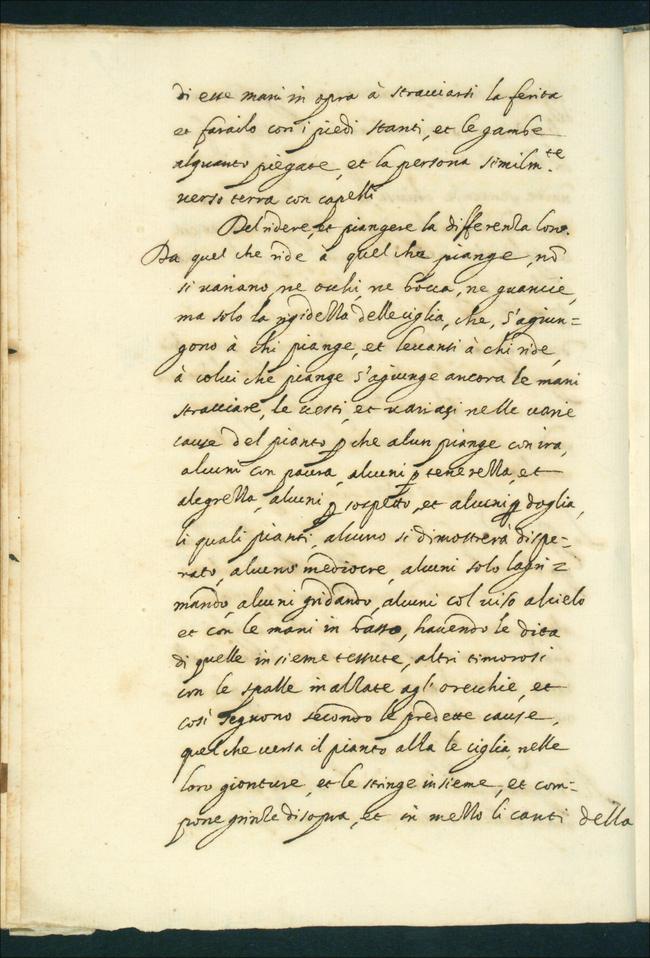 di esse mani in opra à stracciarsi la ferita
et farailo con i piedi stanti, et le gambe
alquanto piegate, et la persona similm.te
verso terra con capelli
Del ridere, et piangere la differenza loro.
Da quel che ride à quel che piange, nõ
si variano, ne occhi, ne bocca, ne guancie,
ma solo la rigidezza delle ciglia, che, s'agiun=
gono à chi piange, et levansi à chi ride,
à colui che piange s'agiunge ancora le mani
stracciare, le vesti, et variasi nelle varie
cause del pianto p che alcun piange con ira,
alcuni con paura, alcuni p tenerezza, et
alegrezza, alcuni p sospetto, et alcuni p doglia,
li quali pianti, alcuno si dimostrerà dispe=
rato, alcuno mediocre, alcuni solo lagri=
mando, alcuni gridando, alcuni col viso al cielo
et con le mani in basso, havendo le dita
di quelle insieme tessute, altri timorosi
con le spalle inalzate agl'orecchie, et
così segnono secondo le predette cause,
quel che versa il pianto alza le ciglia, nelle
loro gionture, et le stringe insieme, et com=
pone grinze di sopra, et in mezzo li canti della